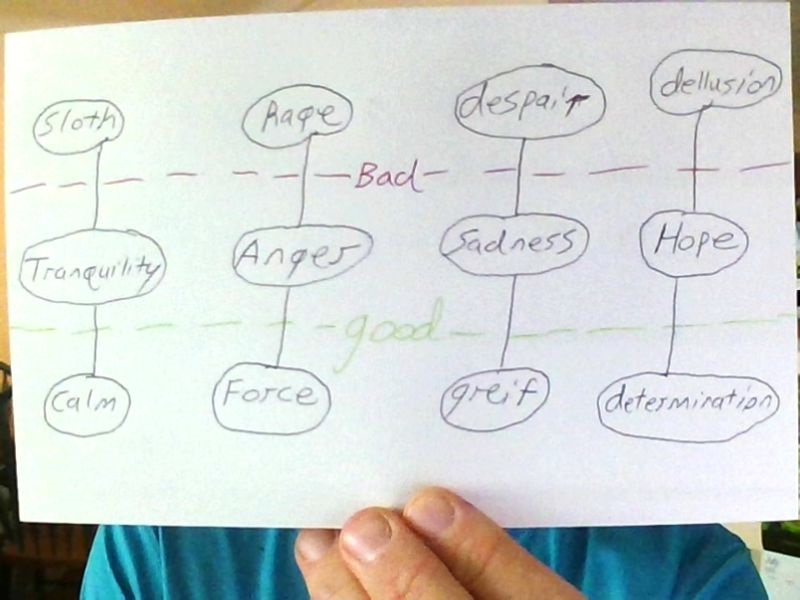 Sloth Rage despair dellusion
Bad
Tranquility Anger Sadness Hope
good
Calm Force greif determination